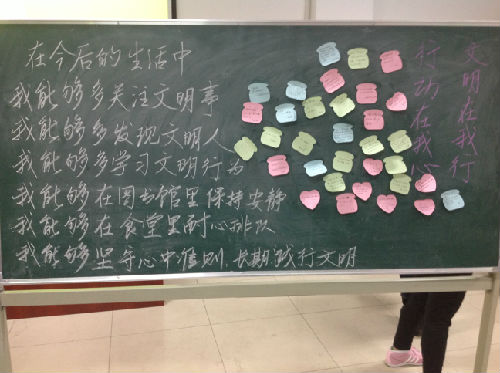 在今后的生活中
我能够多关注文明事
我能够多发现文明人
我能够多学习文明行为
我能够在图书馆里保持安静
我能够在食堂里耐心排队
我能够坚守心中准则,长期践行文明
文明在我行
行动在我心